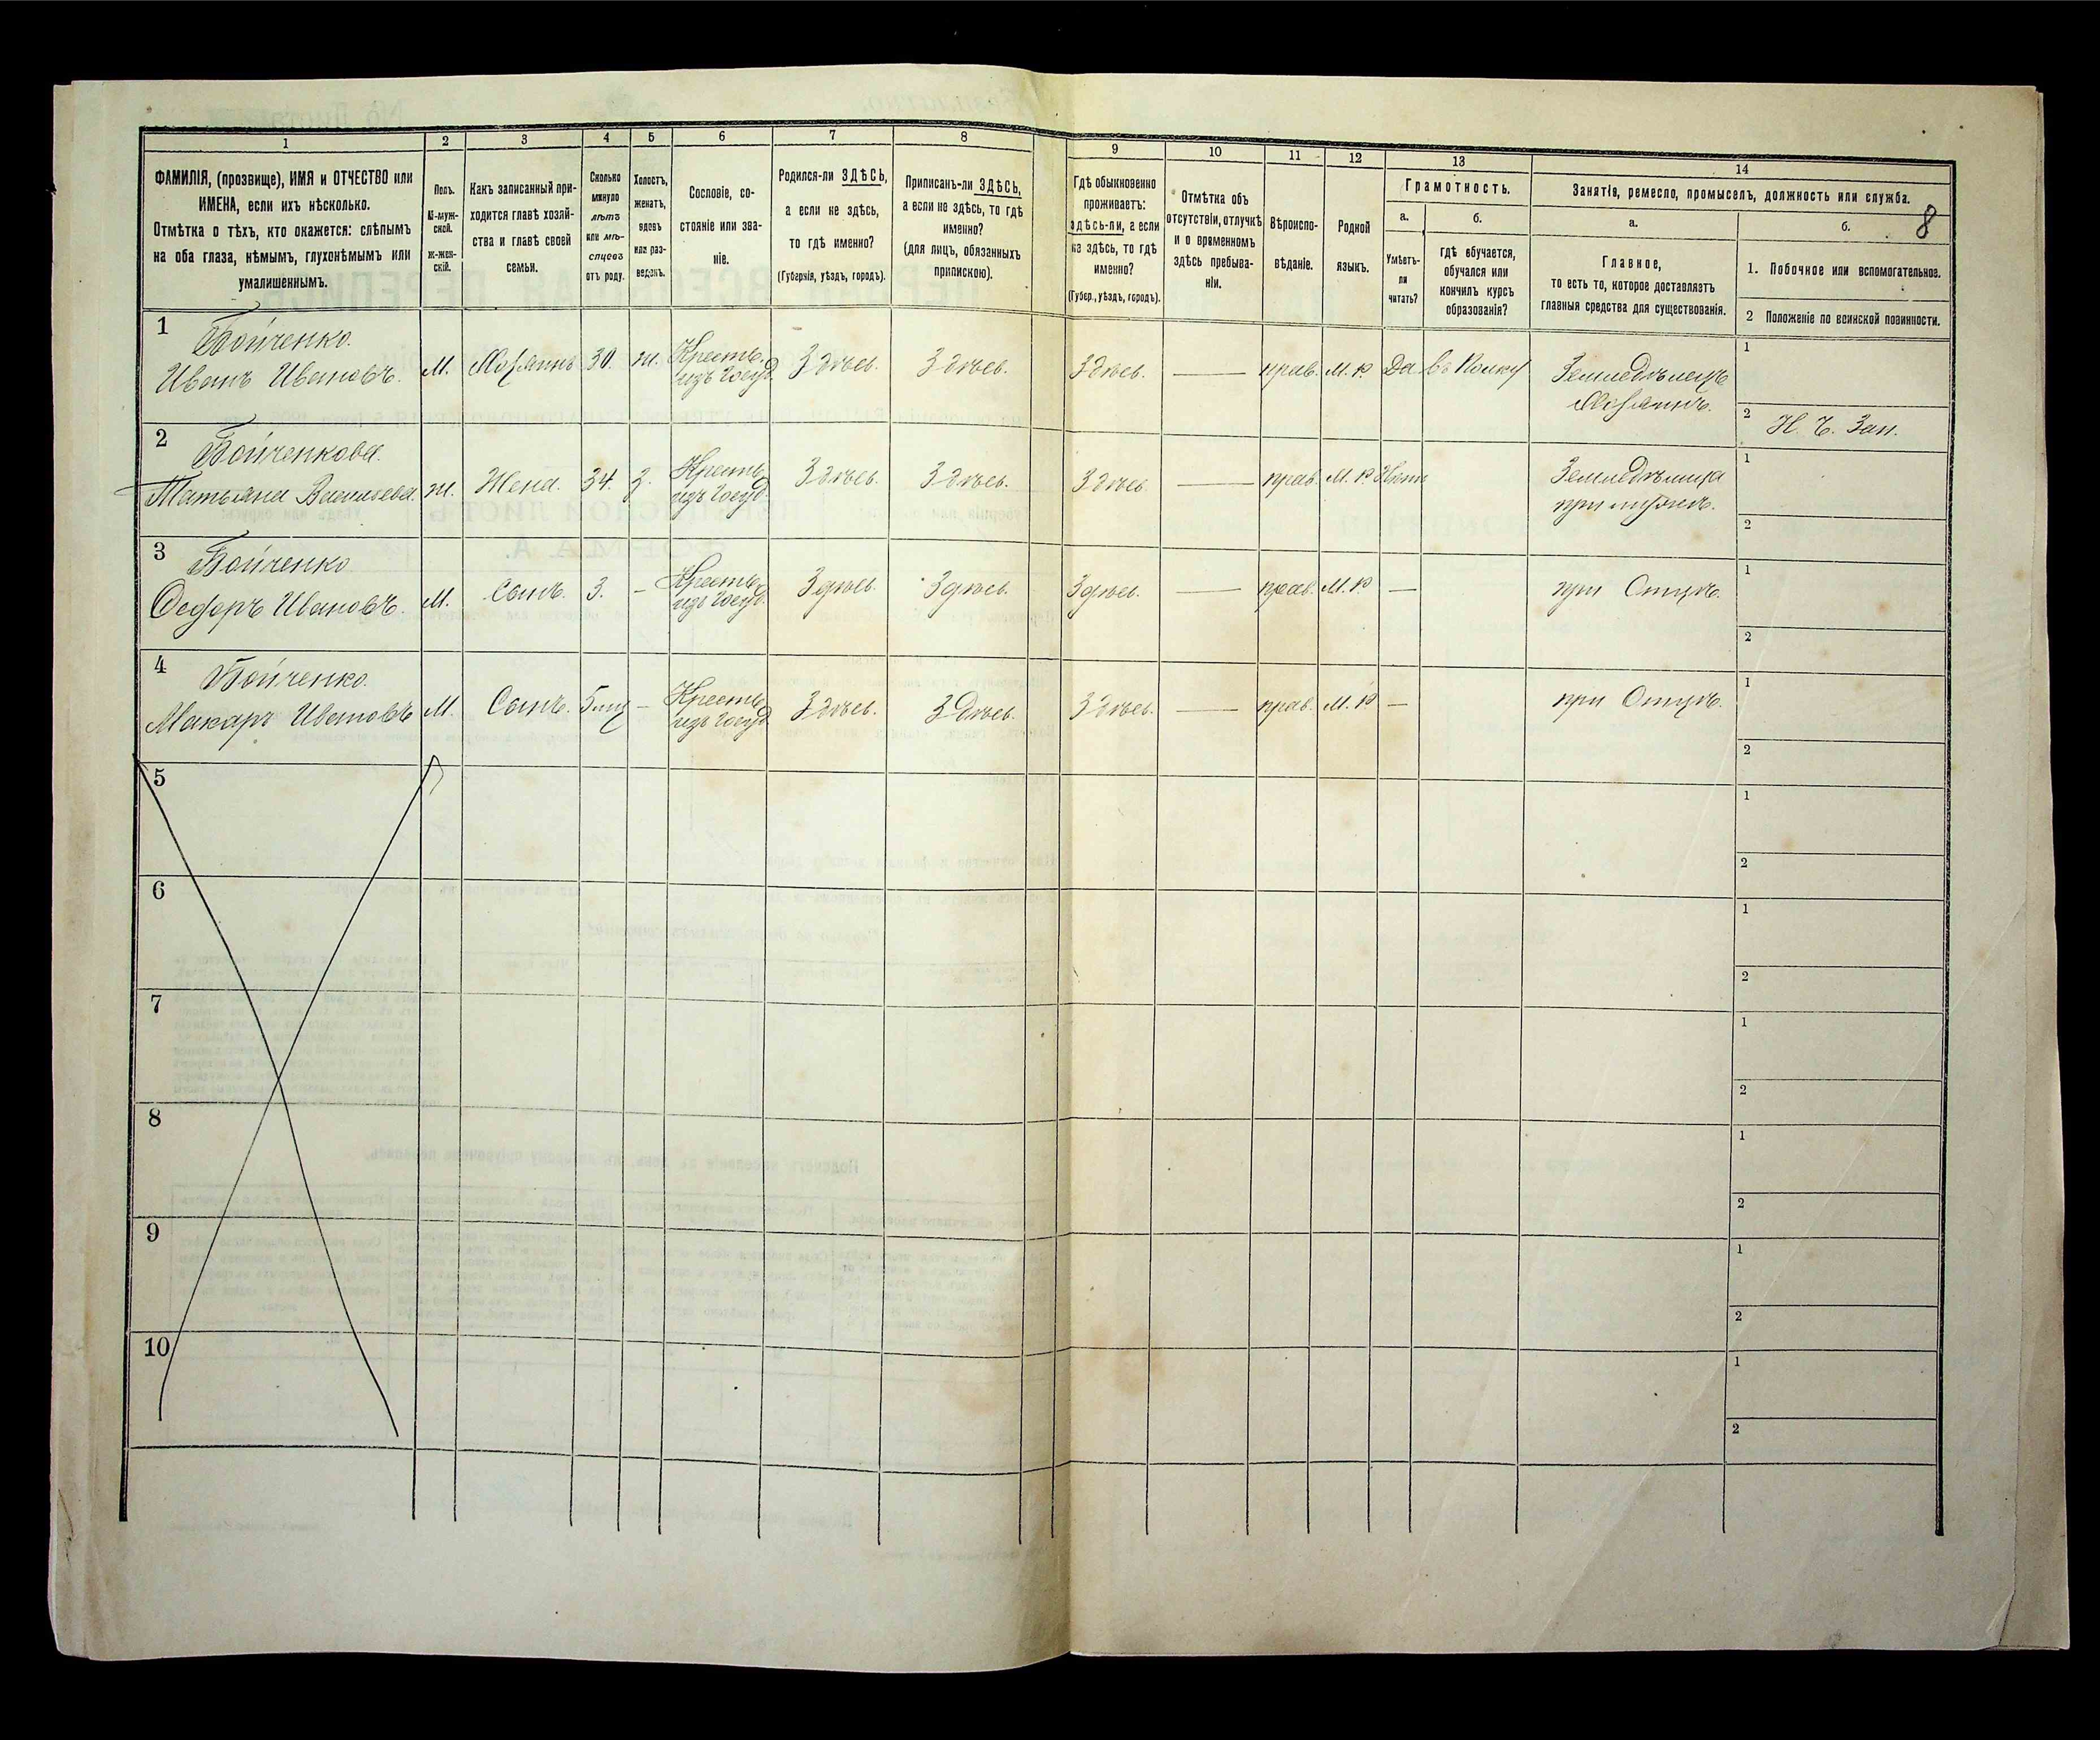 8
1 2 3 4 5 6 7 8 9 10 11 12 13 14
ФАМИЛІЯ, (прозвище), ИМЯ и ОТЧЕСТВО или
ИМЕНА, если ихъ нѣсколько.
Отмѣтка о тѣхъ, кто окажется: слѣпымъ
на оба глаза, нѣмымъ, глухонѣмымъ или
умалишеннымъ.
Полъ.
М-муж-
ской.
Ж-жен-
скій.
Какъ записанный при-
ходится главѣ хозяй-
ства и главѣ своей
семьи.
Сколько
минуло
лѣтъ
или мѣ-
сяцевъ
отъ роду.
Холостъ,
женатъ,
вдовъ
или раз-
веденъ.
Сословіе, со-
стояніе или зва-
ніе.
Родился-ли ЗДѢСЬ,
а если не здѣсь,
то гдѣ именно?
(Губернія, уѣздъ, городъ).
Приписанъ-ли ЗДѢСЬ,
а если не здѣсь, то гдѣ
именно?
(для лицъ, обязанныхъ
припискою).
Гдѣ обыкновенно
проживаетъ:
здѣсь-ли, а если
не здѣсь, то гдѣ
именно?
(Губер., уѣздъ, городъ).
Отмѣтка объ
отсутствіи, отлучкѣ
и о временномъ
здѣсь пребыва-
ніи.
Вѣроиспо-
вѣданіе.
Родной
языкъ.
Грамотность.
а.
Умѣетъ-
ли
читать?
б.
гдѣ обучается,
обучался или
кончилъ курсъ
образованія?
Занятія, ремесло, промыселъ, должность или служба.
а.
Главное,
то есть то, которое доставляетъ
главныя средства для существованія.
б.
1. Побочное или вспомогательное.
2 Положеніе по воинской повинности.
1 Бойченко.
Иванъ Ивановъ. М. Хозяинъ 30. ж. Кресть. изъ Госуд. Здѣсь. Здѣсь. Здѣсь. — прав. М. р. Да въ Полку Земледѣлецъ
Хозяинъ.
1
2 Н. Ч. Зап.
2 Бойченкова.
Татьяна Васильева. ж. Жена. 34. з. Кресть. изъ Госуд. Здѣсь. Здѣсь. Здѣсь — прав. М. р. Нѣтъ Земледѣлица
при мужѣ.
1
2
3 Бойченко
Ѳедоръ Ивановъ. М. Сынъ. 3. - Кресть. изъ Госуд. Здѣсь. Здѣсь. Здѣсь. — прав. М. р — при Отцѣ.
1
2
4 Бойченко.
Макаръ Ивановъ М. Сынъ. - Кресть. изъ Госуд. Здѣсь. Здѣсь. Здѣсь. — прав. М. р — при Отцѣ.
1
2
5
1
2
6
1
2
7
1
2
8
1
2
9
1
2
10
1
2